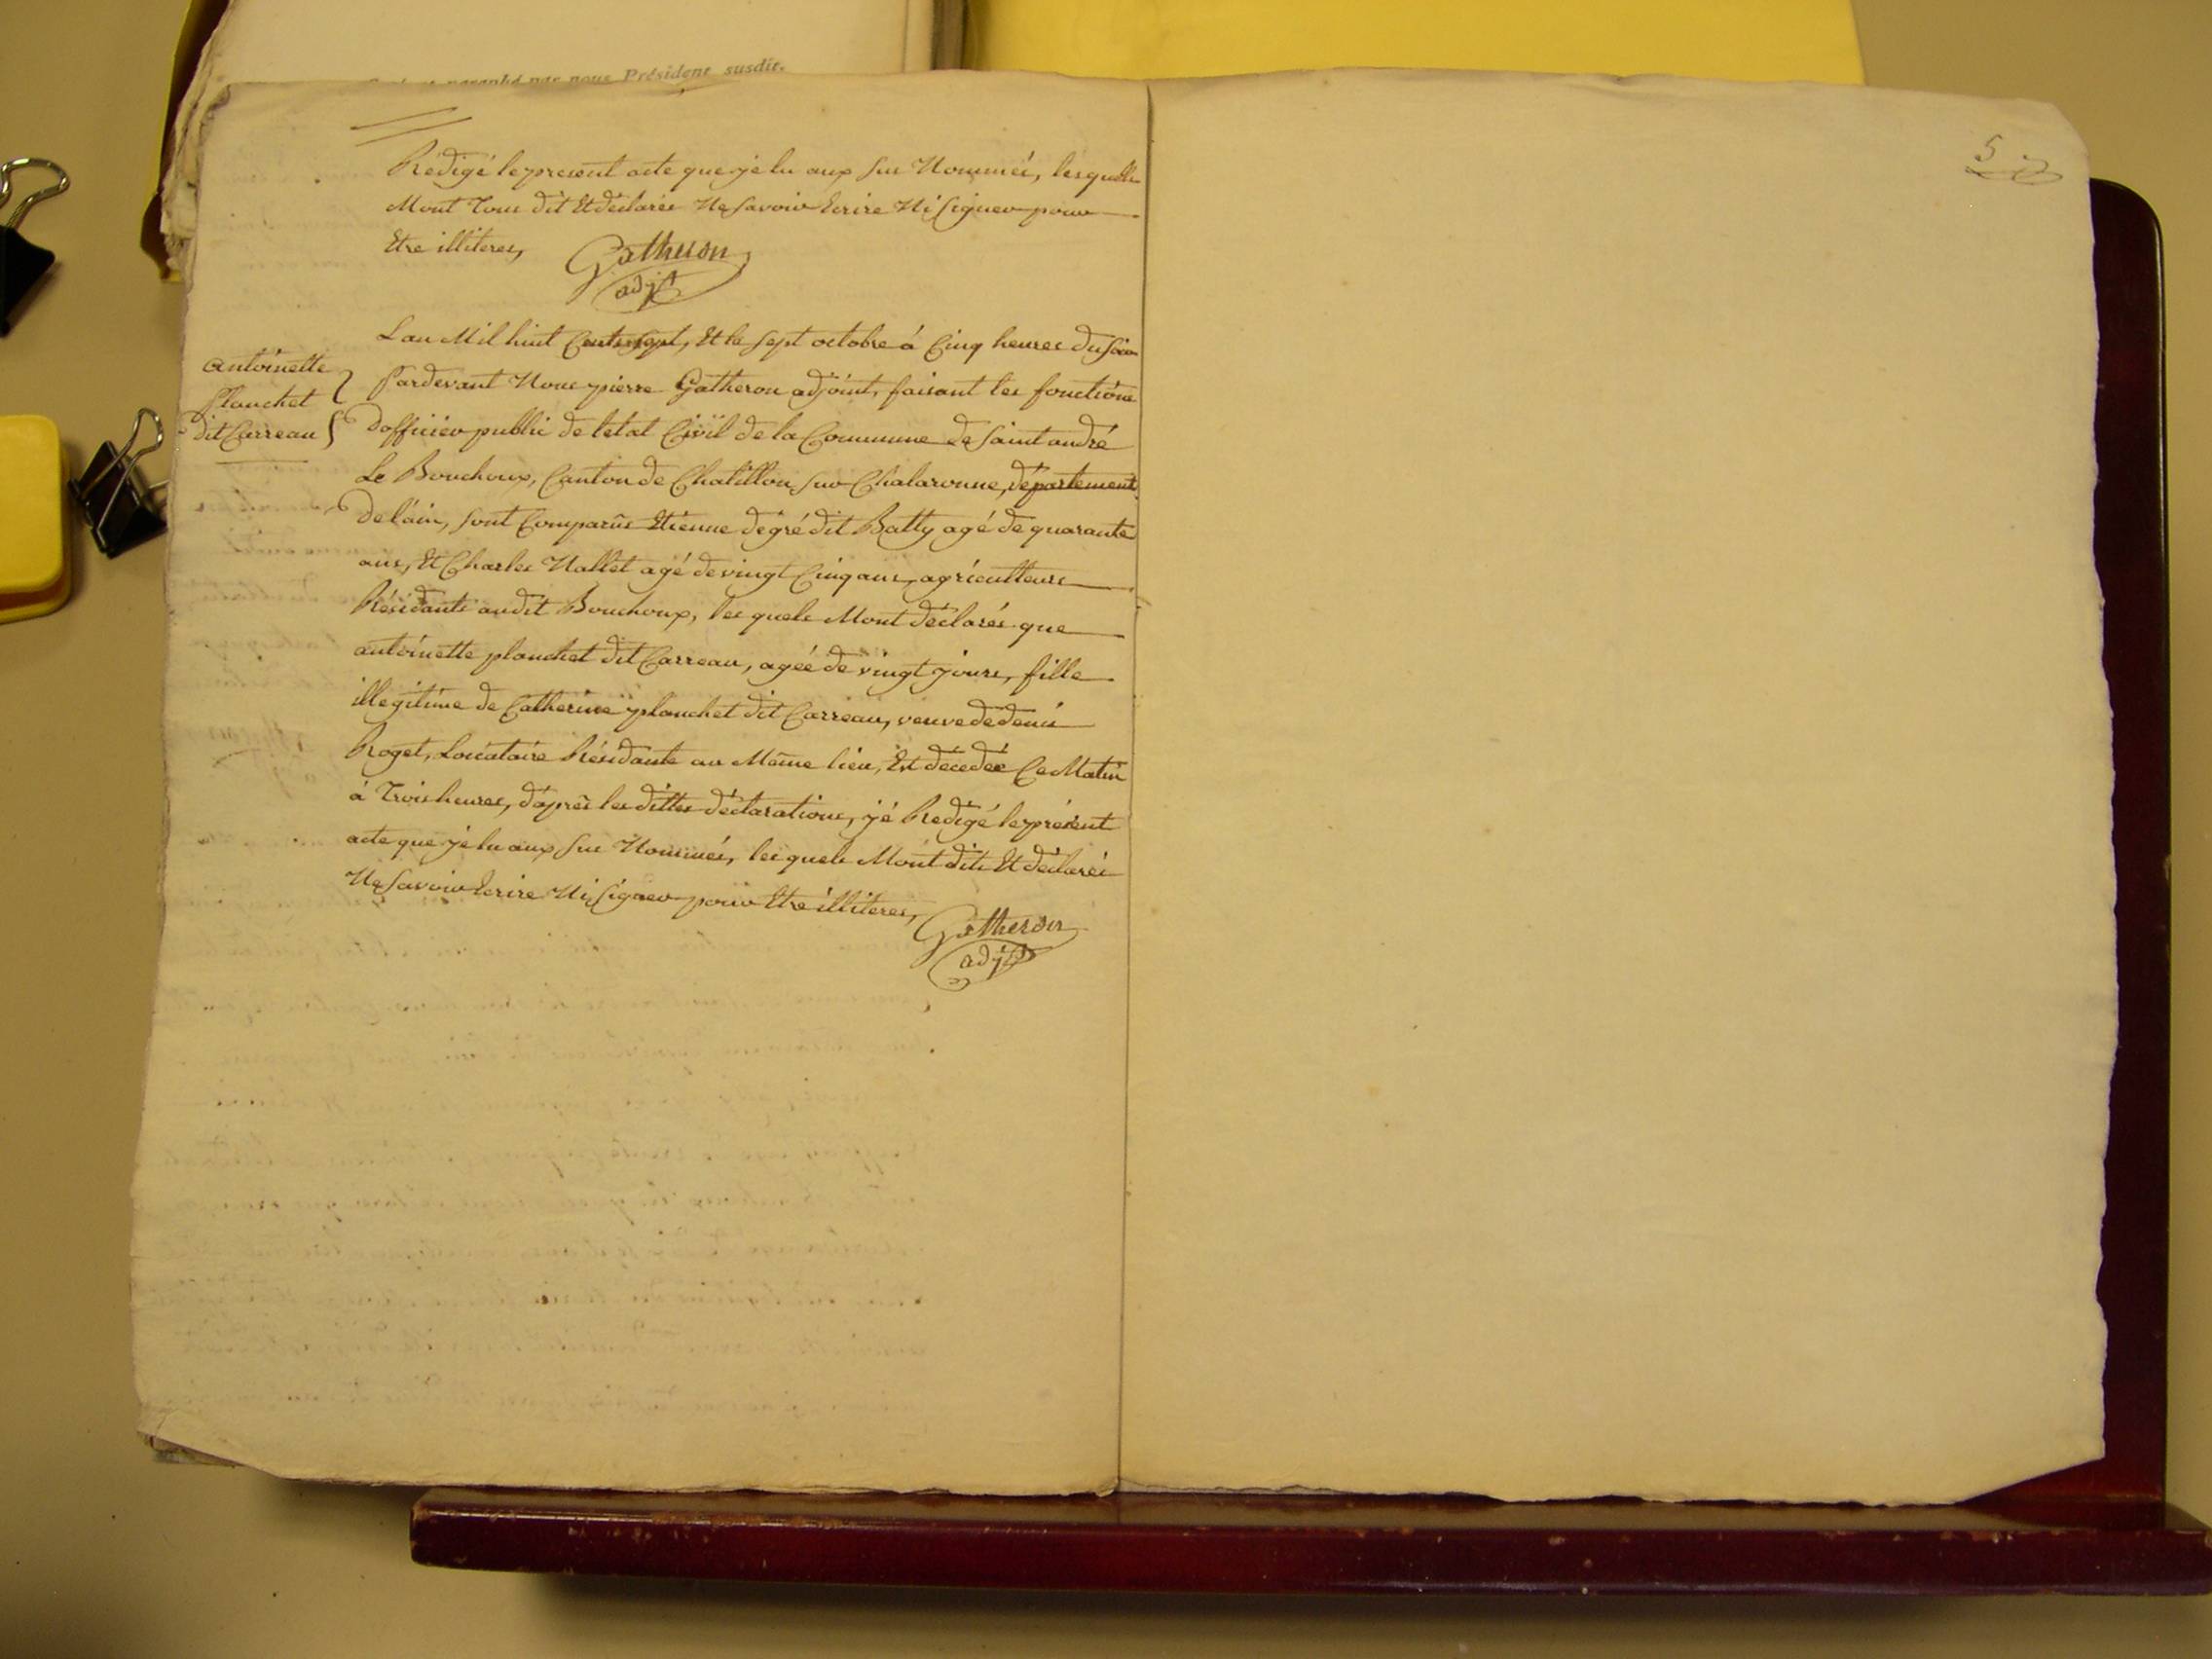 par nous Président susdit.
5
Rédigé le present acte que jé lu aux sus Nommés, lesquels
Mont Tous dit Et déclarés Ne savoir Ecrire Ni signer pour
Etre illiteres,
Gatheron
adjt
Antoinette
Planchet
dit Carreau
Lan Mil huit Cent sept, Et le sept octobre á Cinq heures du soir
Pardevant Nous pierre Gatheron adjoint, faisant les fonctions
dofficier public de létat Civil de la Commune de saint andré
Le Bouchoux, Canton de Chatillon sur Chalaronne, département
de láin, sont Comparûs Etienne dégré dit Batty agé de quarante
ans, Et Charles Nallet agé de vingt Cinq ans, agriculteurs
Résidants audit Bouchoux, les quels Mont déclarés que
antoinette planchet dit Carreau, agéé de vingt jours, fille
illegitime de Catherine planchet dit Carreau, veuve de denis
Roget, Locataire Résidante au Même lieu, Est décedée Ce Matin
á Trois heures, dáprès les dittes déclarations, jé Redigé le présent
acte que jé lu aux sus Nommés, les quels Mont dits Et déclarés
Ne savoir Ecrire Ni signer pour Etre illiteres,
Gatheron
adjt